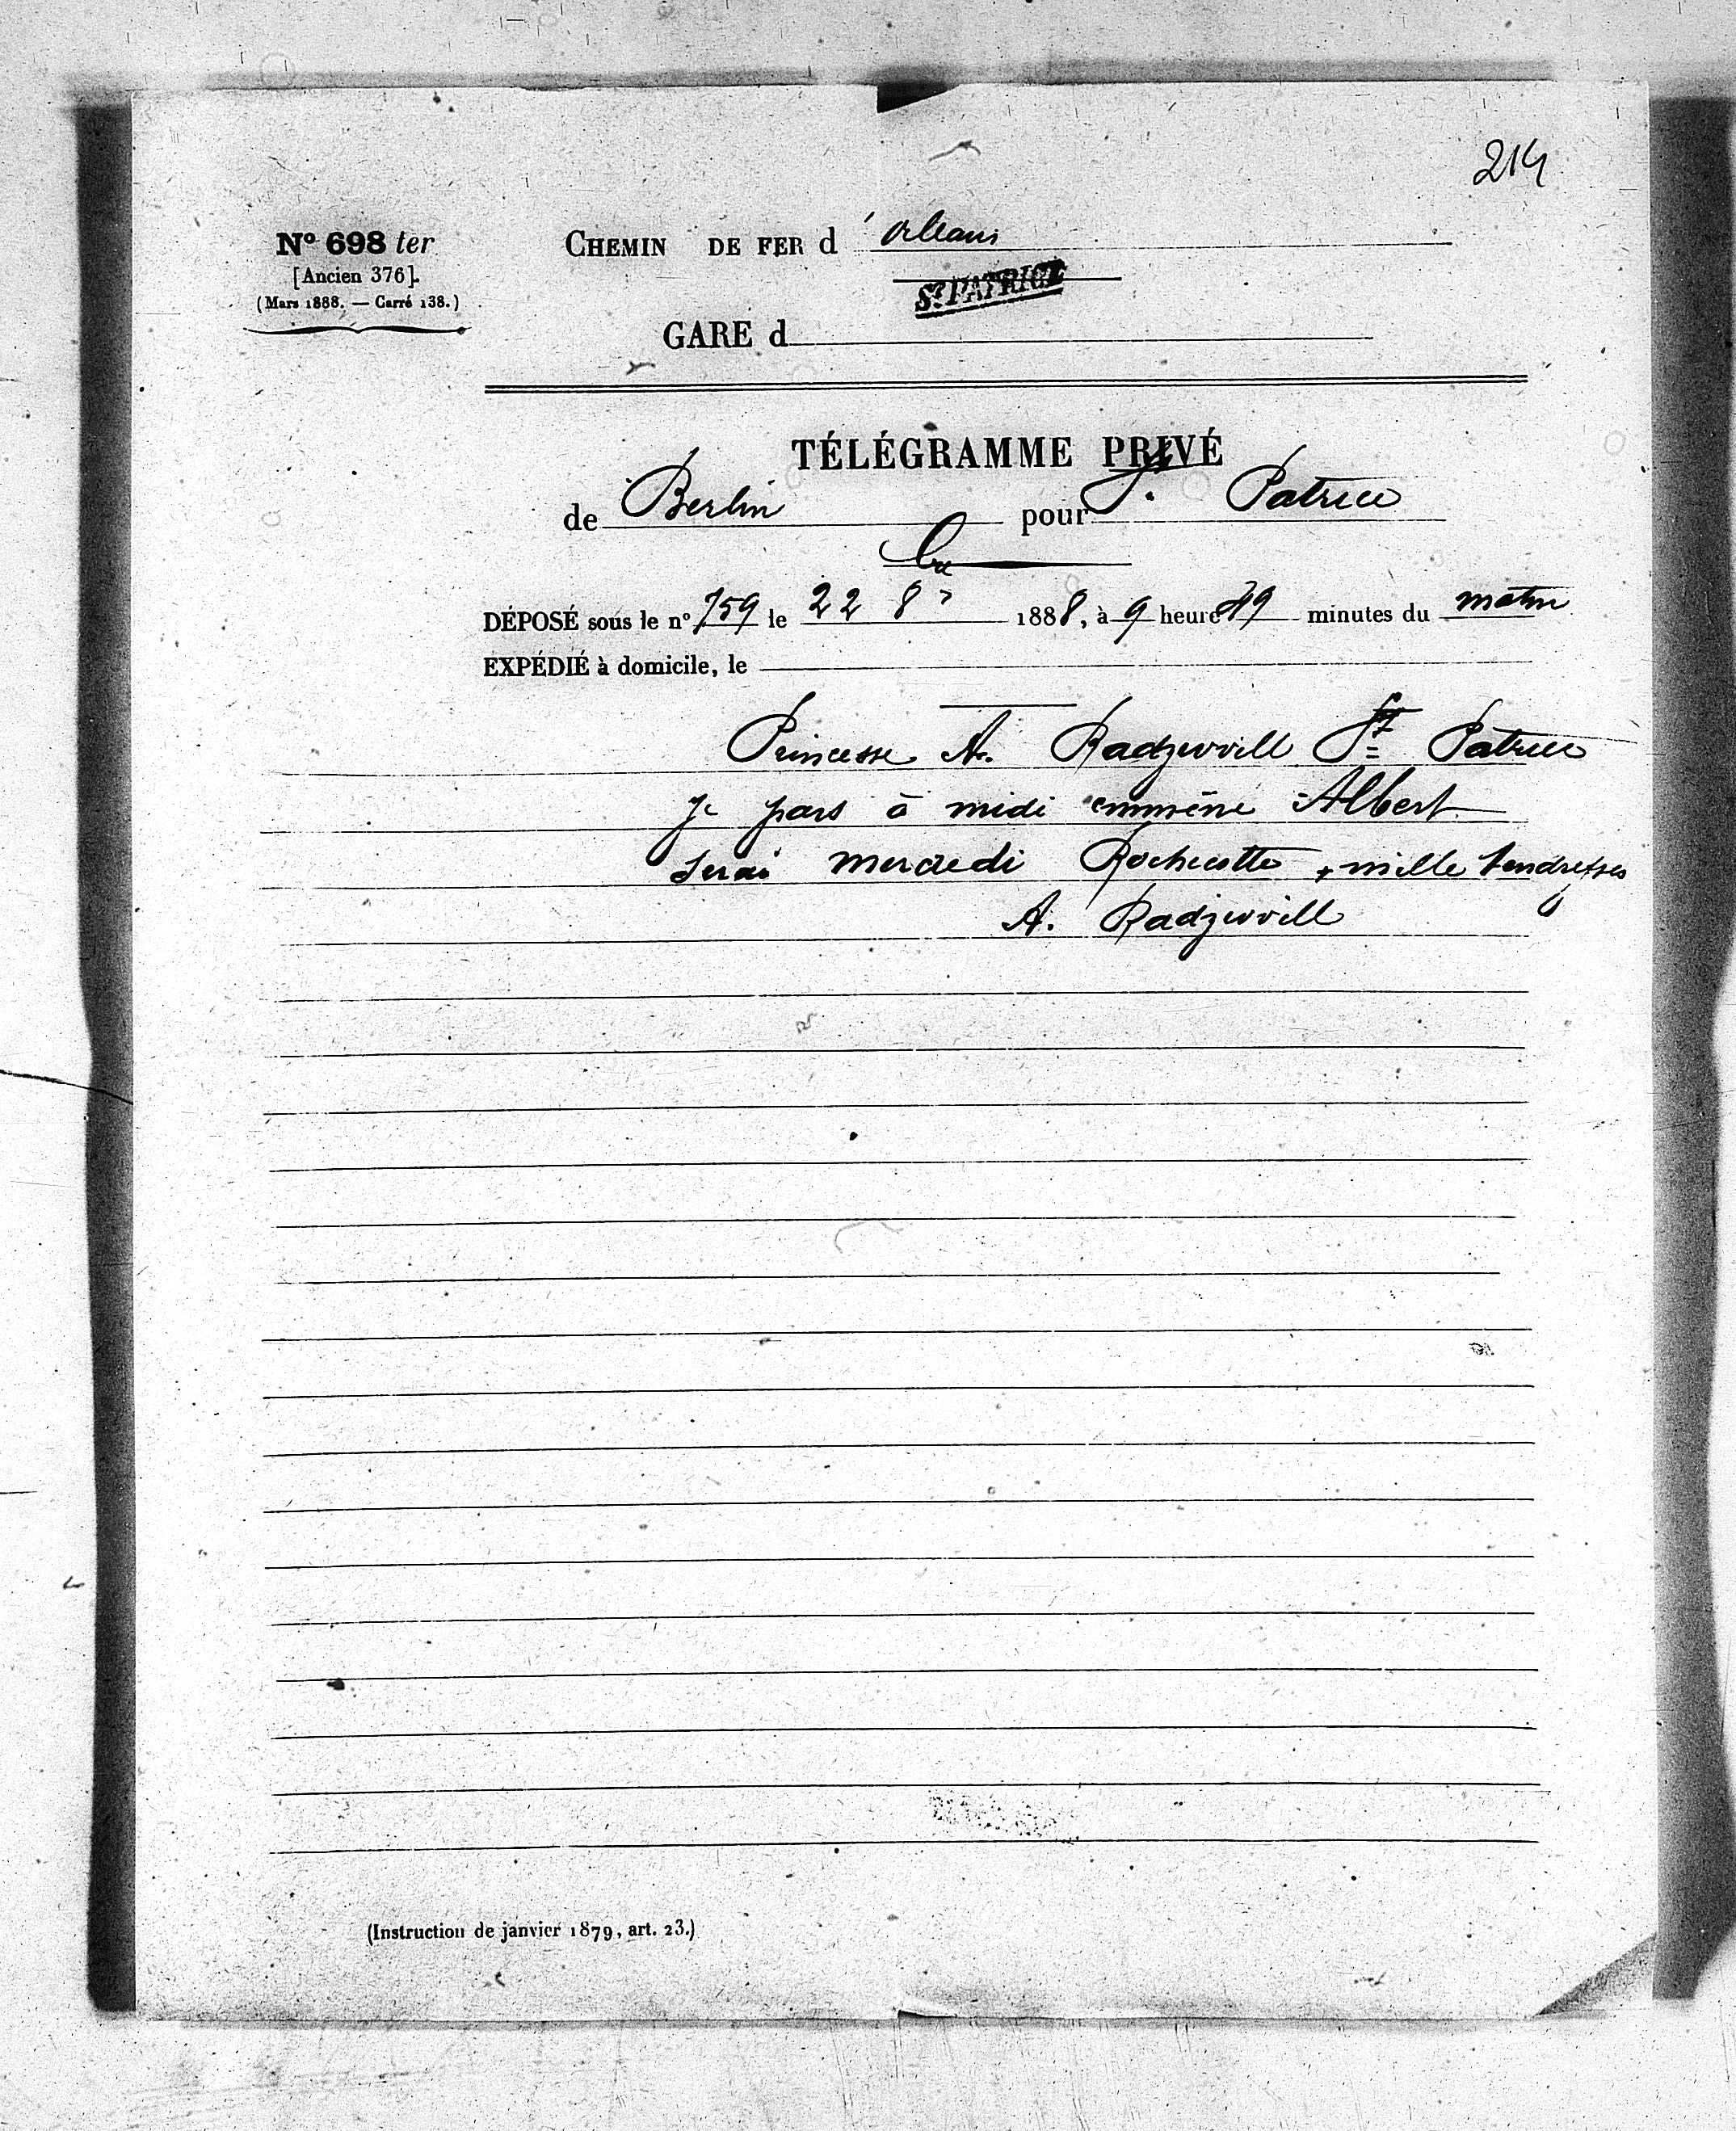 214
Nº 698 ter
[Ancien 376].
(Mars 1888. — Carré 138.)
CHEMIN DE FER d'Orléans
St PATRICE
GARE d
TÉLÉGRAMME PRIVÉ
de Berlin pour St Patrice
DÉPOSÉ sous le nº 759 le 22 8e 1888, à 9 heure 49 minutes du matin
EXPÉDIÉ à domicile, le
Princesse A. Radziwill St Patrice
je pars à midi emmène Albert
serai mercredi Rochecotte mille tendresses
A. Radziwill
(Instruction de janvier 1879, art. 23.)